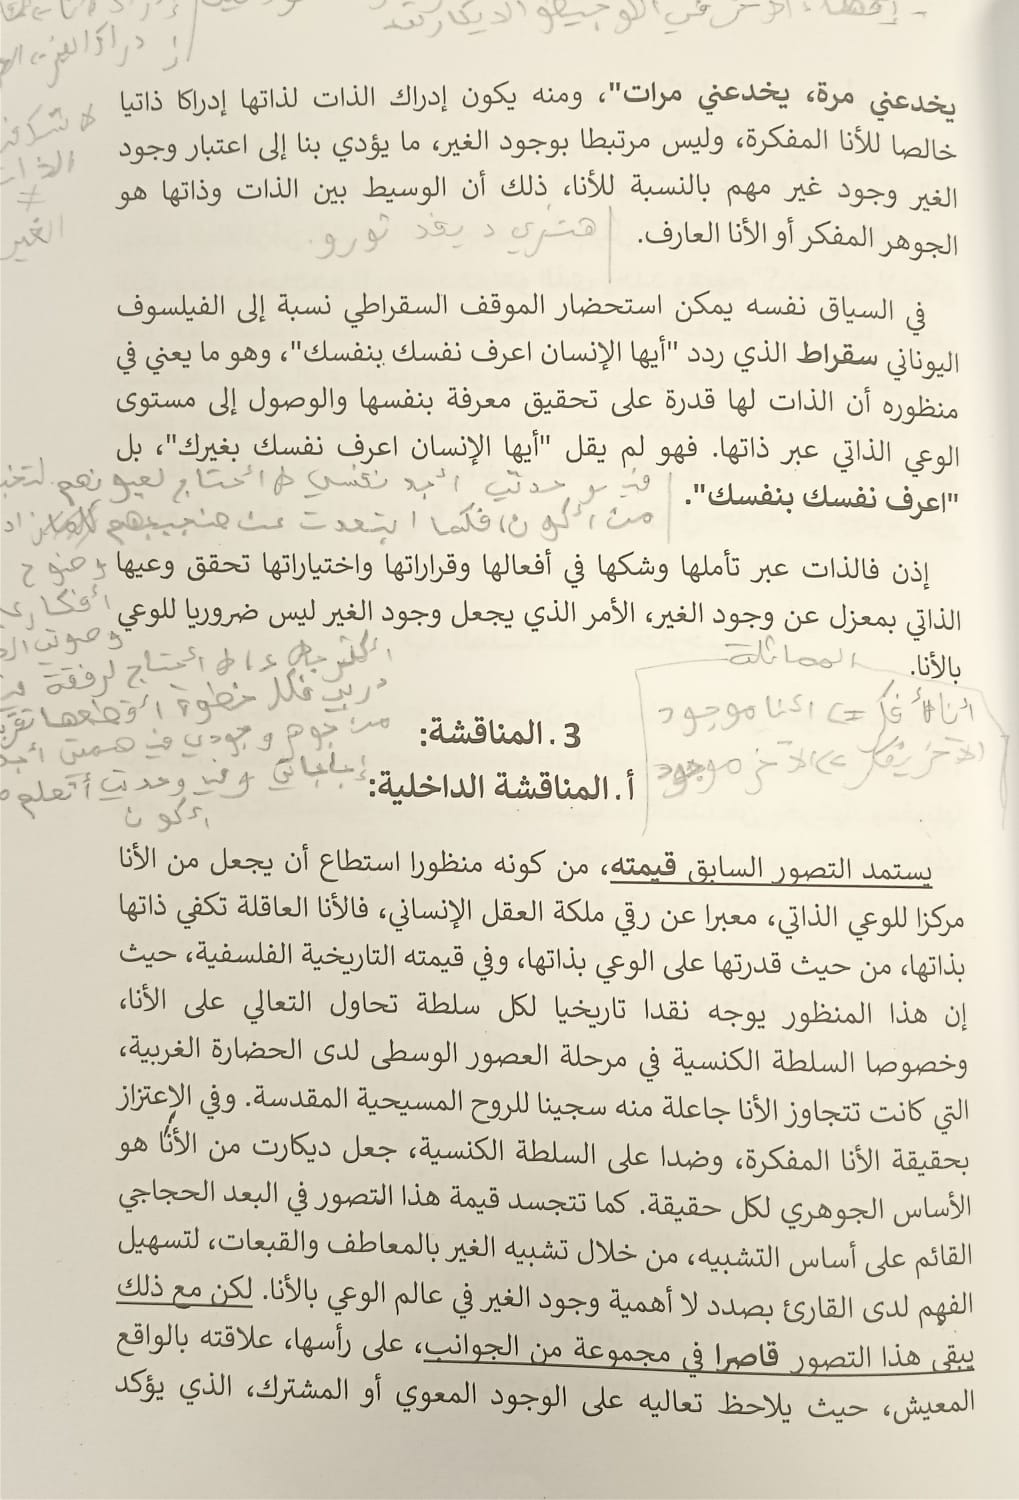 يخدعني مرة، يخدعني مرات"، ومنه يكون إدراك الذات لذاتها إدراكا ذاتيا
خالصا للأنا المفكرة، وليس مرتبطا بوجود الغير، ما يؤدي بنا إلى اعتبار وجود
الغير وجود غير مهم بالنسبة للأنا، ذلك أن الوسيط بين الذات وذاتها هو
الجوهر المفكر أو الأنا العارف.
هنري ديفد ثورو.
الذات
≠
الغير
في السياق نفسه يمكن استحضار الموقف السقراطي نسبة إلى الفيلسوف
اليوناني سقراط الذي ردد "أيها الإنسان اعرف نفسك بنفسك"، وهو ما يعني في
منظوره أن الذات لها قدرة على تحقيق معرفة بنفسها والوصول إلى مستوى
الوعي الذاتي عبر ذاتها. فهو لم يقل "أيها الإنسان اعرف نفسك بغيرك"، بل
"اعرف نفسك بنفسك".
في وحدتي أجد نفسي لا أحتاج لعيونهم
من أكون، فكلما ابتعدت عن ضجيجهم
وضوح
أفكاري
إذن فالذات عبر تأملها وشكها في أفعالها وقراراتها واختياراتها تحقق وعيها
الذاتي بمعزل عن وجود الغير، الأمر الذي يجعل وجود الغير ليس ضروريا للوعي
بالأنا.
المماثلة
أنا أفكر => أنا موجود
الآخر يفكر => الآخر موجود
لا أحتاج لرفقة
دربي فكل خطوة أقطعها
من جوهر وجودي في صمتي أجد
إجاباتي وفي وحدتي أتعلم
أكون
3. المناقشة:
أ. المناقشة الداخلية:
يستمد التصور السابق قيمته، من كونه منظورا استطاع أن يجعل من الأنا
مركزا للوعي الذاتي، معبرا عن رقي ملكة العقل الإنساني، فالأنا العاقلة تكفي ذاتها
بذاتها، من حيث قدرتها على الوعي بذاتها، وفي قيمته التاريخية الفلسفية، حيث
إن هذا المنظور يوجه نقدا تاريخيا لكل سلطة تحاول التعالي على الأنا،
وخصوصا السلطة الكنسية في مرحلة العصور الوسطى لدى الحضارة الغربية،
التي كانت تتجاوز الأنا جاعلة منه سجينا للروح المسيحية المقدسة. وفي الإعتزاز
بحقيقة الأنا المفكرة، وضدا على السلطة الكنسية، جعل ديكارت من الأنا هو
الأساس الجوهري لكل حقيقة. كما تتجسد قيمة هذا التصور في البعد الحجاجي
القائم على أساس التشبيه، من خلال تشبيه الغير بالمعاطف والقبعات، لتسهيل
الفهم لدى القارئ بصدد لا أهمية وجود الغير في عالم الوعي بالأنا. لكن مع ذلك
يبقى هذا التصور قاصرا في مجموعة من الجوانب، على رأسها، علاقته بالواقع
المعيش، حيث يلاحظ تعاليه على الوجود المعوي أو المشترك، الذي يؤكد